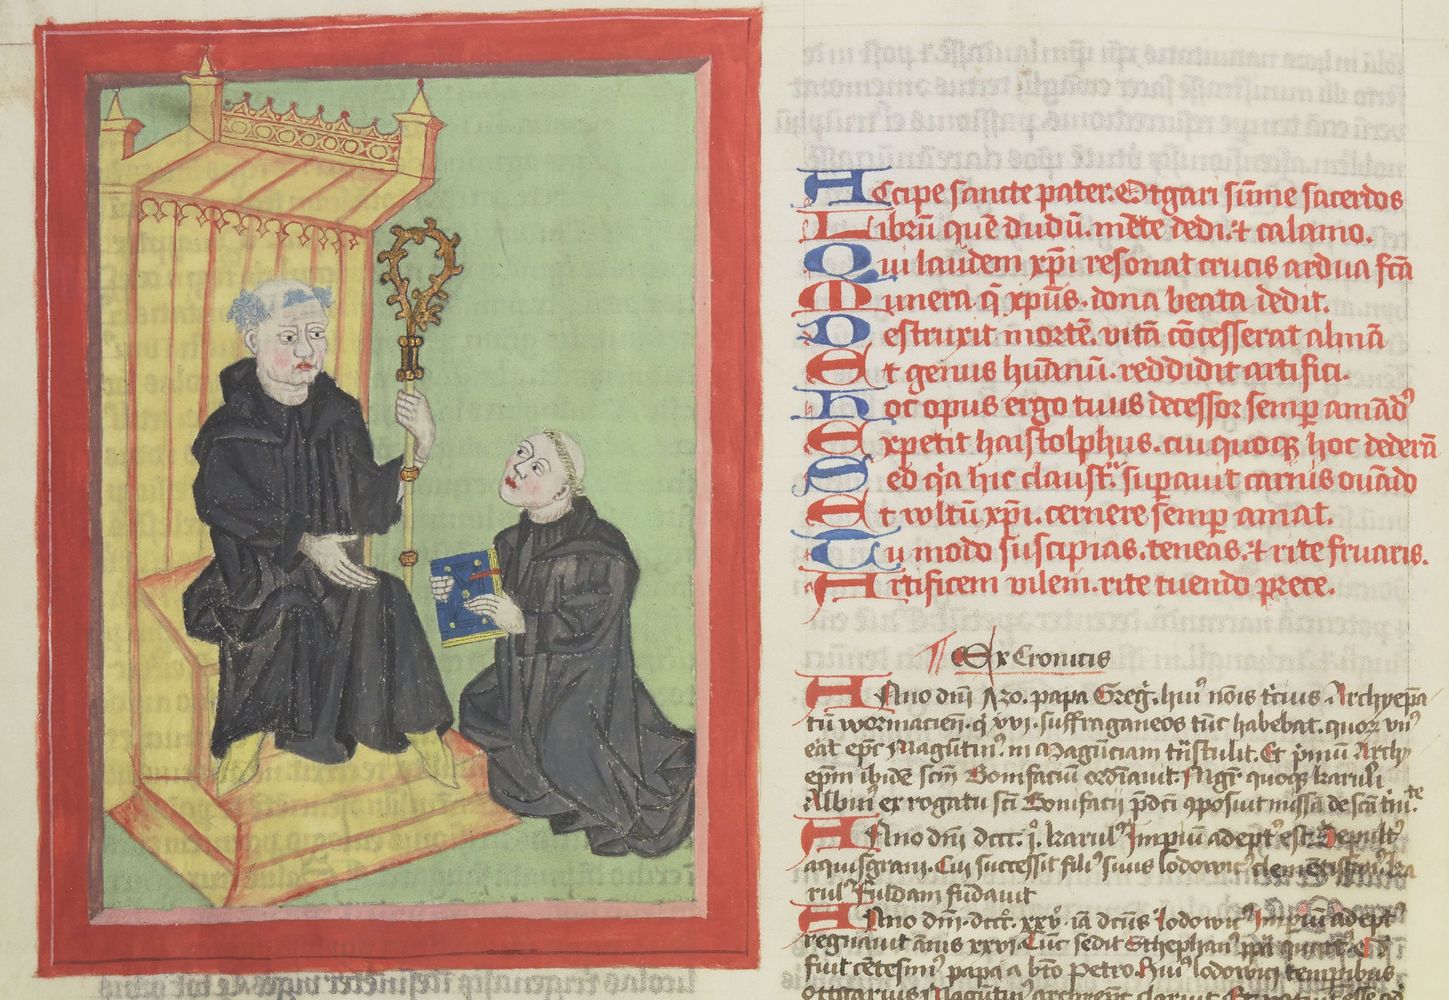 Accipe sancte pater. Otgari sūme sacerdos
Librū quē dudū. mēte dedi. ⁊ calamo.
Qui laudem xp̄i resonat crucis ardua fc̄a
Munera q̄ xp̄us. dona beata dedit.
Destruxit mortē. vitā cōcesserat almā
Et genus humanū. reddidit artifici.
Hoc opus ergo tuus decessor semꝑ amādꝰ
Expetit haistolphus. cui quoqꝫ hoc dederā
Sed q̄a hic claustͣ. suꝑauit carnis ouādo
Et woltū xp̄i. cernere semꝑ amat.
Tu modo suscipias. teneas. ⁊ rite fruaris.
Artificem vilem. rite tuendo prece.
¶ Ex Cronicis
Anno dn̄i 730. papa Greḡ. huiꝰ nōis t̓cius Archyep̄a
tū wormacien̄. q̓ xvi. suffraganeos tūc habebat. quoꝝ vnꝰ
eāt ep̄c Magūtinꝰ. in Magūciam tn̄stulit. Et p̓mū Archy
ep̄m ibidē sc̄m Bonifaciū ordīauit. Mgr̄ quoqꝫ karuli
Albinꝰ ex rogatu sc̄i Bonifacij p̄dc̄i ꝯposuit missā de sc̄a t̓nitͭᵉ
Anno dn̄i dccc. j̊. karulꝰ Imꝑiū adeptꝰ est. Sepultꝰ
aquisgrani. Cui successit filiꝰ suus lodowicꝰ clemētissimꝰ. ka
rulꝰ Fuldam fūdauit
Anno dn̄i. dccc̄. xxv̊. iā dictus lodowicꝰ Imꝑiū adeptꝰ
regnauit ānis xxvi. Tūc sedit Sthephanꝰ
fuit cētesimꝰ papa a bt̄o Petro. Huiꝰ lodowici temporibus
Ottgarius Magūtinꝰ